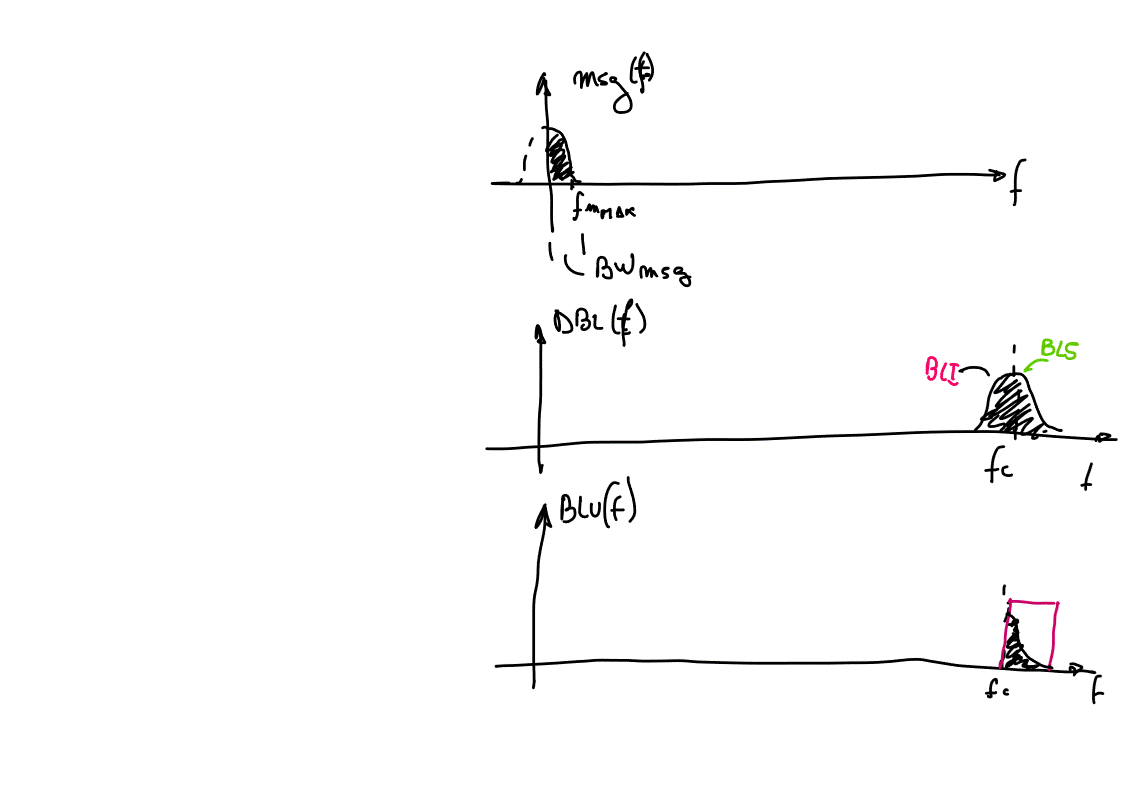 msg(f)
f
fmMAX
BWmsg
DBL(f)
BLI
BLS
fc
f
BLU(f)
fc
f